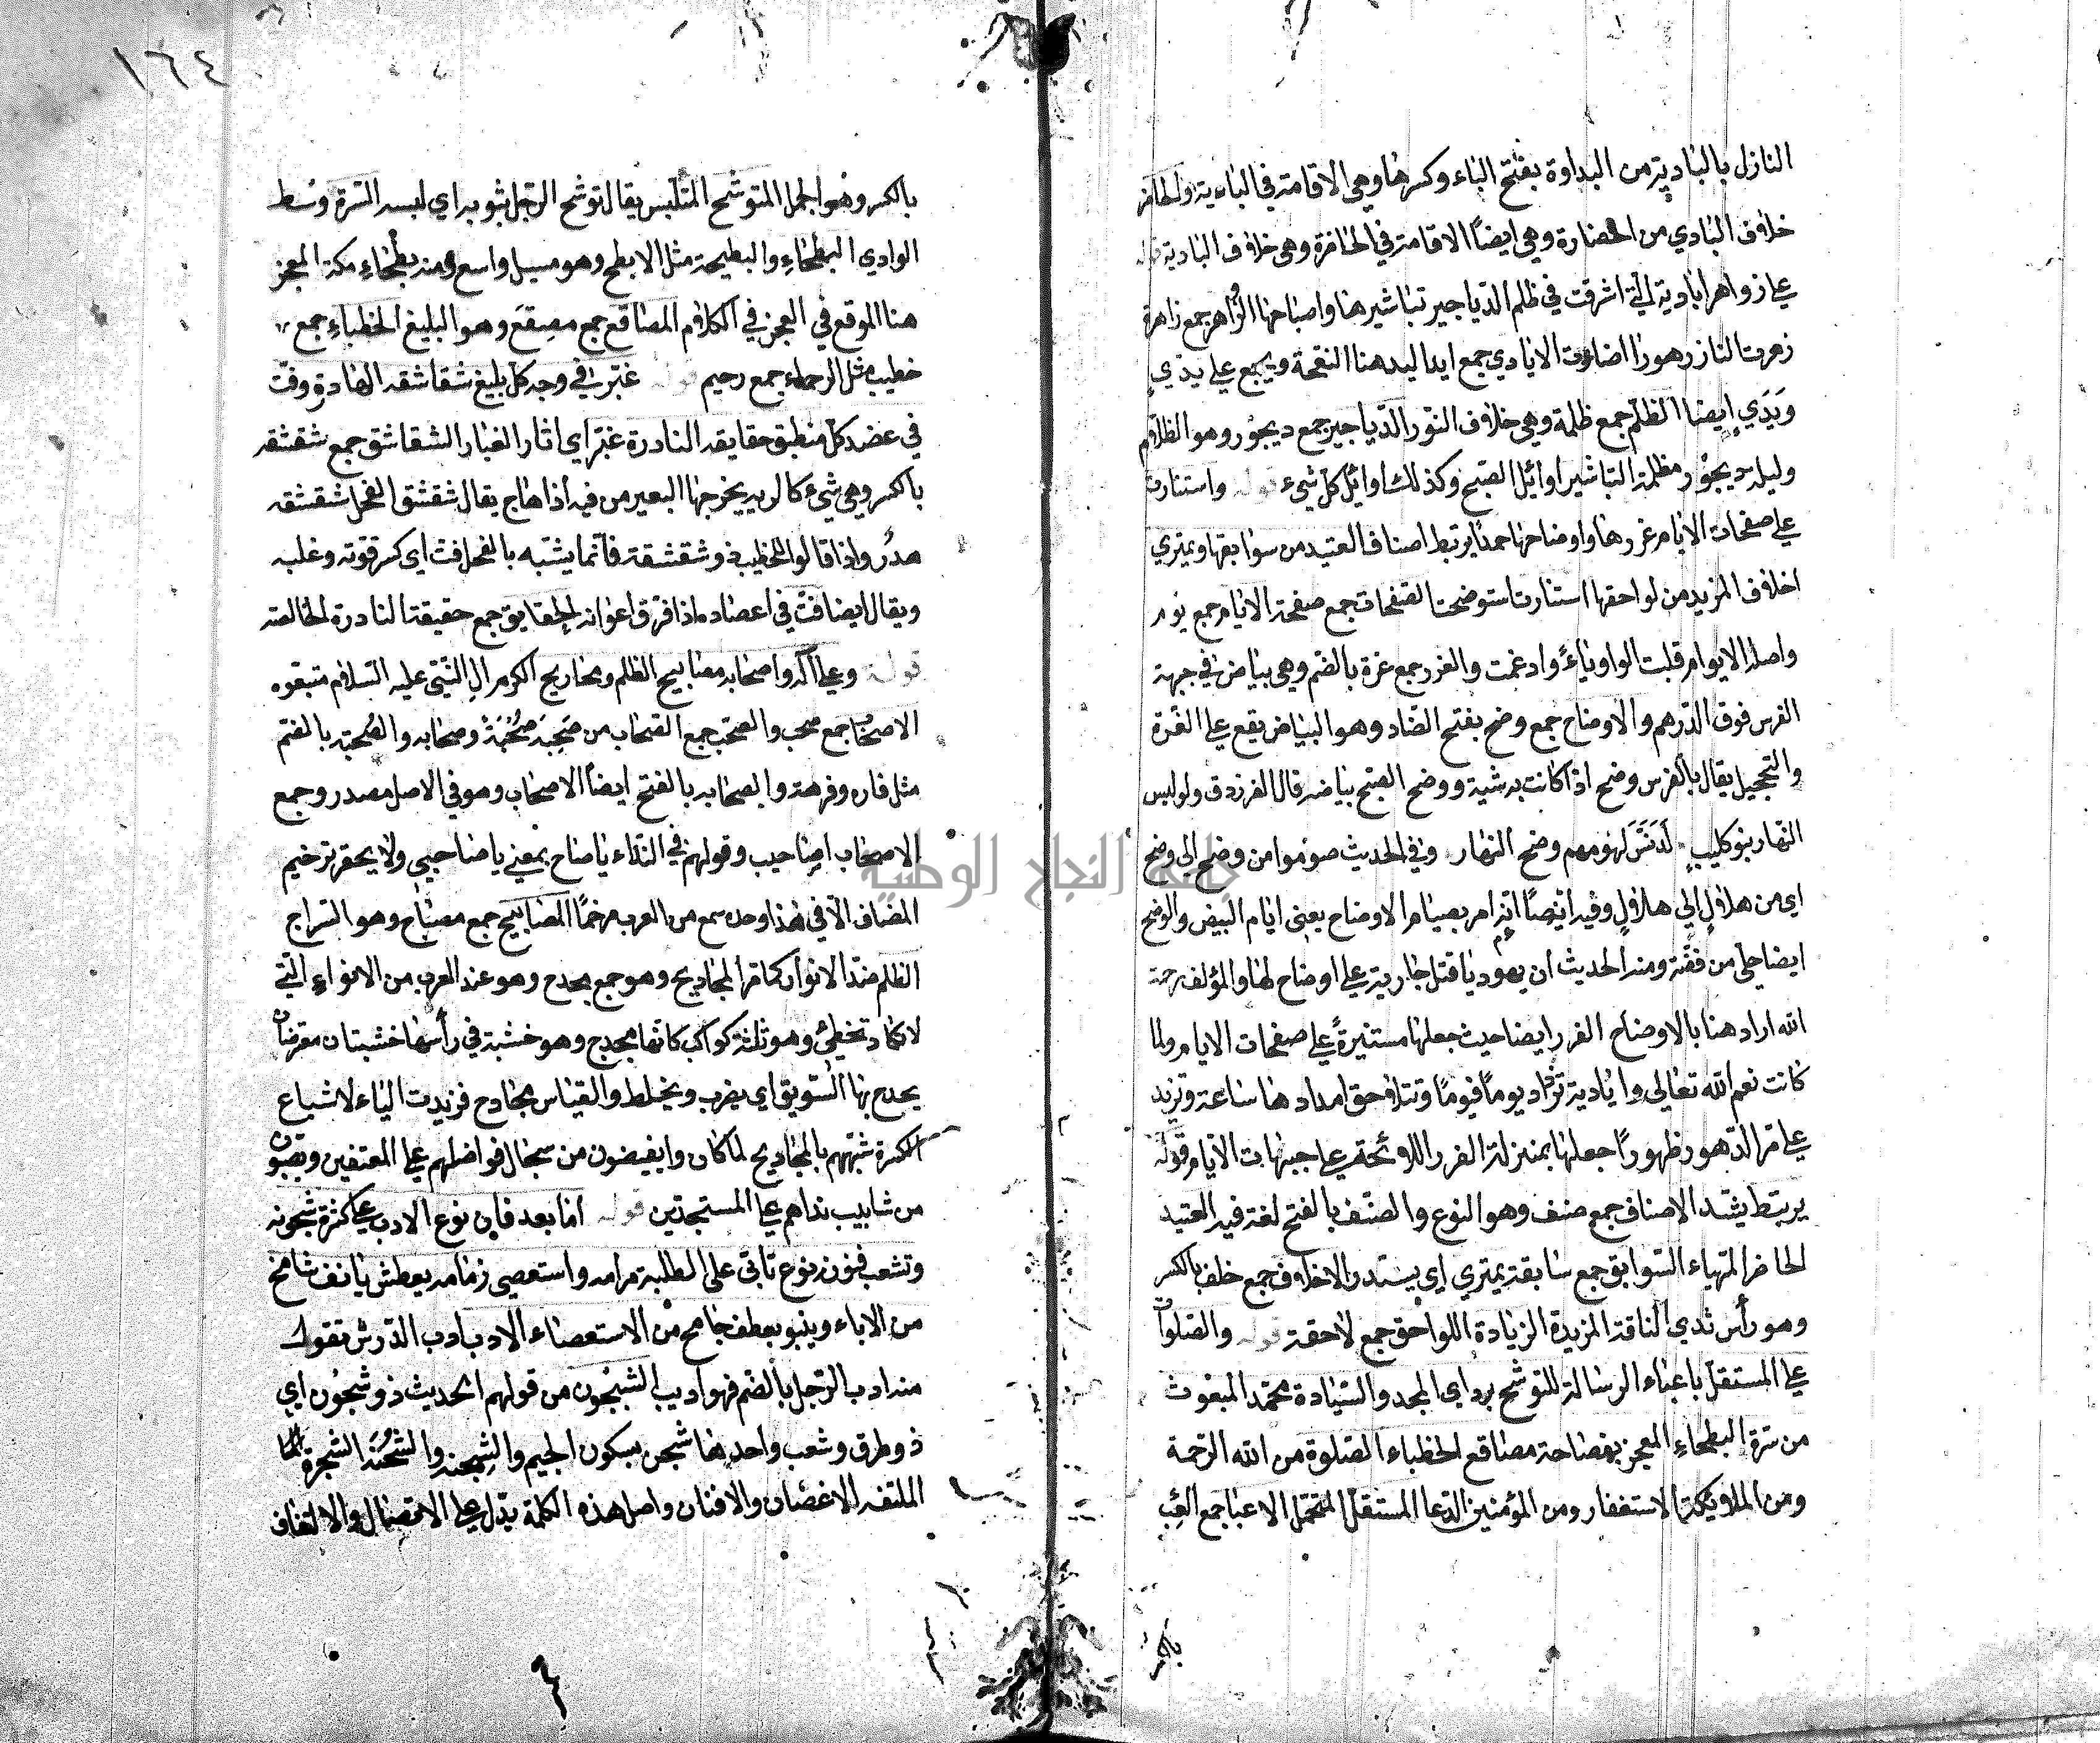 النازل بالبادية من البداوة بفتح الباء وكسرها وهي الاقامة في البادية والحاضر
خلاف البادي من الحضارة وهي ايضاً الاقامة في الحاضرة وهي خلاف البادية قوله
علي زواهر اياديه التي اشرقت في ظلم الدياجير تباشيرها واصباحها الزواهر جمع زاهرة
زهرت النار زهورا اضاءت الايادي جمع ايد اليد هنا النعمة ويجمع علي يذيٍ
ويَدَيٍ ايضا الظلم جمع ظلمة وهي خلاف النور الدياجير جمع ديجور وهو الظلام
وليلة ديجور مظلمة التباشير اوائل الصبح وكذلك اوائل كل شيء قوله واستنارت
علي صفحات الايام غررها واوضاحها حمداً يرتبط اصناف العتيد من سوابقها ويمتري
اخلاف المزيد من لواحقها استنارت استوضحت الصفحات جمع صفحة الايام جمع يوم
واصله الايوام قلبت الواو ياءً وادغمت والغرر جمع غرة بالضم وهي بياض في جبهة
الفرس فوق الدرهم والاوضاح جمع وضح بفتح الضاد وهو البياض يقع علي الغرة
والتحجيل يقال بالفرس وضح اذا كانت به شية ووضح الصبح بياضه قال الفرزدق ولو لبس
النهار بنو كليبٍ لدَنَّسَ لؤمهم وضح النهار وفي الحديث صوموا من وضح الي وضح
اي من هلالٍ الي هلالٍ وفيه ايضاً انه امر بصيام الاوضاح يعني ايام البيض والوضح
ايضا حلي من فضة ومنه الحديث ان يهوديا قتل جارية علي اوضاح لها والمؤلف رحمة
الله اراد هنا بالاوضاح الغرر ايضا حيث جعلها مستنيرةً علي صفحات الايام ولما
كانت نعم الله تعالي واياديه تزداد يوماً فيوماً وتتلاحق امدادها ساعة وتزيد
علي مر الدهور ظهوراً جعلها بمنزلة الغرر اللائحة علي جبهات الايام قوله
يرتبط يشد الاصناف جمع صنف وهو النوع والصنف بالفتح لغة فيه العتيد
الحاضر المهياء السوابق جمع سابقة يمتري اي يستدر والاخلاف جمع خلف بالكسر
وهو رأس ثدي الناقة المزيدة الزيادة اللواحق جمع لاحقة قوله والصلوة
علي المستقل باعباء الرسالة المتوشح برداي المجد والسيادة محمد المبعوث
من سرة البطحاءِ المعجز بفصاحته مصاقع الخطباء الصلوة من الله الرحمة
ومن الملائكة الاستغفار ومن المؤمنين الدعا المستقل المتحمل الاعبا جمع العِبء
بالكسر
١٦٤
بالكسر وهو الحمل المتوشح المتلبس يقال توشح الرجل بثوبه اي لبسه السرة وسط
الوادي البطحاءِ والبطيحة مثل الابطح وهو مسيل واسع ومنه بطحاءِ مكة المعجز
هنا الموقع في العجز في الكلام المصاقع جمع مصقع وهو البليغ الخطباءِ جمع
خطيب مثل الرحماء جمع رحيم قوله غبّرت في وجه كل بليغ شقاشقه الهادرة وفتّ
في عضد كل منطيق حقايقه النادرة غبّر اي اثار الغبار الشقاشق جمع شقشقه
بالكسر وهي شيء كالريه يخرجها البعير من فيه اذا هاج يقال شقشق الفحل شقشقه
هدر واذا قالوا للخطيب ذو شقشقة فانما يشبّه بالفحل فت اي كسر قوته وغلبه
ويقال ايضا فتّ في اعضاده اذا فرّق اعوانه الحقايق جمع حقيقة النادرة الخالصة
قوله وعلي آله واصحابه مصابيح الظلم ومجاريح الكرم ال النبي عليه السلام متبعوه
الاصحاب جمع صحب والصحب جمع الصحاب من صَحِبَه صُحْبَةً وصحابه والصُحبة بالضم
مثل فاره وفرهة والصحابه بالفتح ايضاً الاصحاب وهو في الاصل مصدر وجمع
الاصحاب اصاحيب وقولهم في النداء يا صاح بمعني يا صاحبي ولا يجوز ترخيم
المضاف الا في هذا وحده سمع من العرب مرخماً المصابيح جمع مصباح وهو السراج
الظلم ضد الانوار كما مر المجاديح وهو جمع مجدح وهو عند العرب من الانواءِ التي
لا تكاد تخطئ وهو ثلثة كواكب كانها مجدح وهو خشبة في رأسها خشبتان معترضتان
يجدح بها السويق اي يضرب ويخلط والقياس مجادح فزيدت الياء لاشباع
الكسرة شبّههم بالمجاديح لما كانوا يفيضون من سجال فواضلهم علي المعتفين ويصبون
من شابيب نداهم علي المستجدين قوله اما بعد فان نوع الادب علي كثرة شجونه
وتشعب فنونه نوع تابّى على الطلبة مرامه واستعصي زمامه يعطش بانف شامخ
من الاباء وينبو بعطف جامح من الاستعصاء الادب ادب الدرس تقول
منه ادب الرجل بالضم فهو اديب الشجون من قولهم الحديث ذو شجون اي
ذو طرق وشعب واحدها شجن بسكون الجيم والشِجنه والشُجنة الشجرة
الملتفه الاغصان والافنان واصل هذه الكلمة يدل علي الاتصال والالتفاف
جامعة النجاح الوطنية